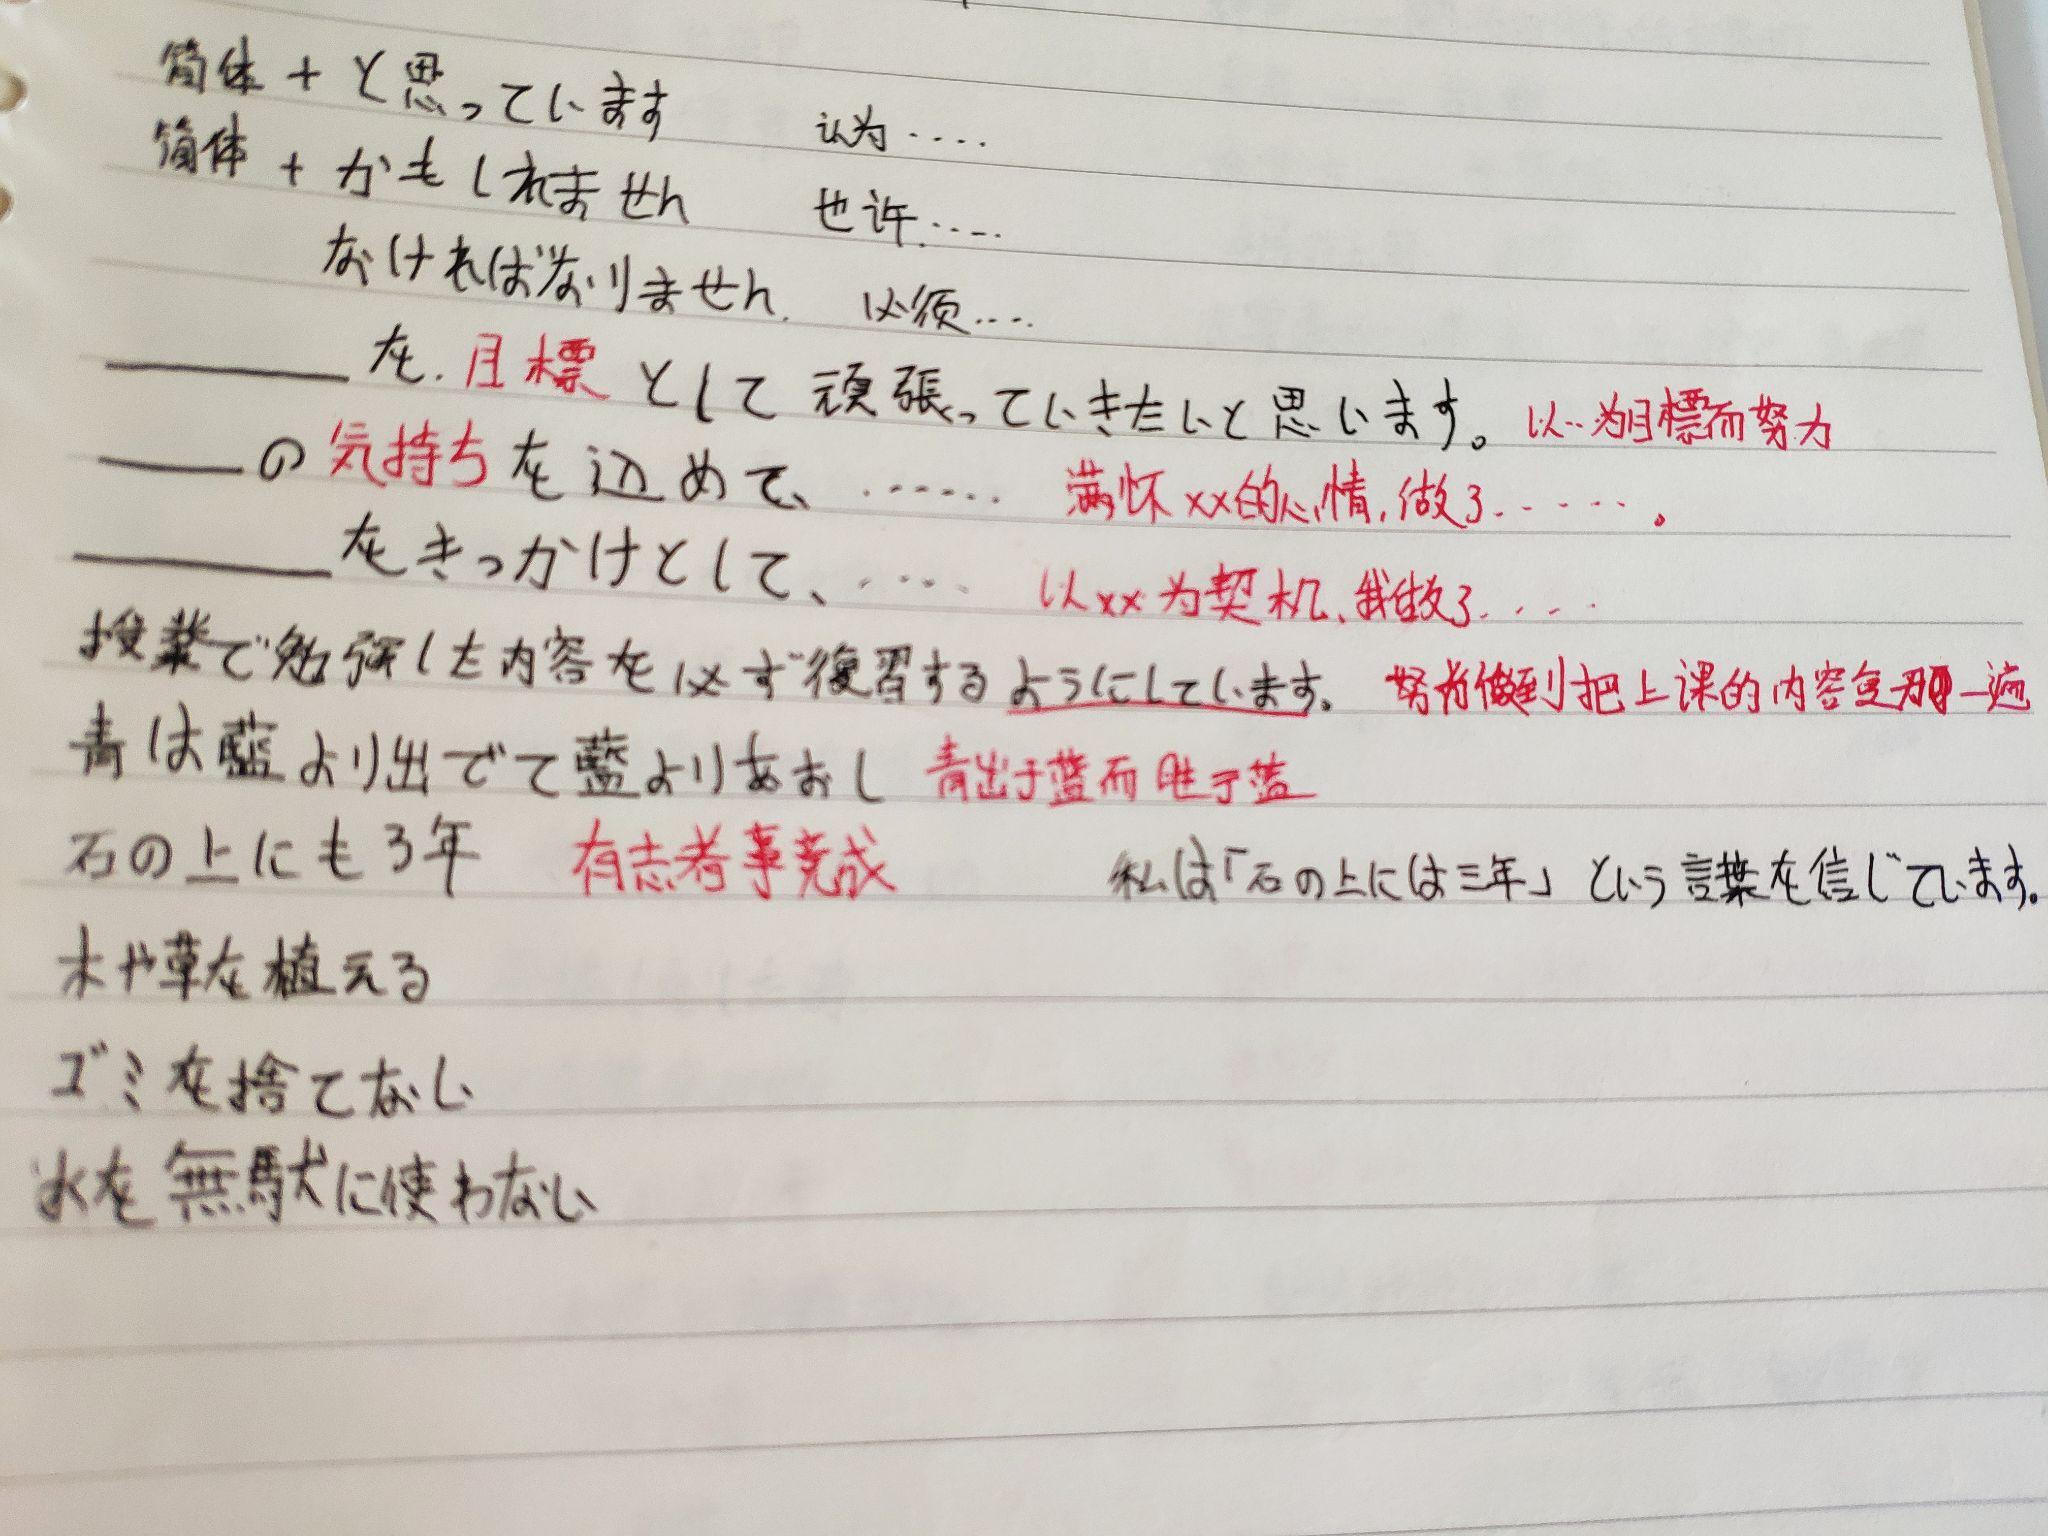 简体 + と思っています 认为....
简体 + かもしれません 也许.....
なければなりません. 必须....
を.目標として頑張っていきたいと思います。 以..为目標而努力
の気持ちを込めて、...... 满怀xx的心情,做了......。
をきっかけとして、.... 以xx为契机、我做了....
授業で勉強した内容を必ず復習するようにしています。 努力做到把上课的内容复习一遍
青は藍より出でて藍よりあおし 青出于蓝而胜于蓝
石の上にも3年 有志者事竟成 私は「石の上には三年」という言葉を信じています。
木や草を植える
ゴミを捨てない
水を無駄に使わない